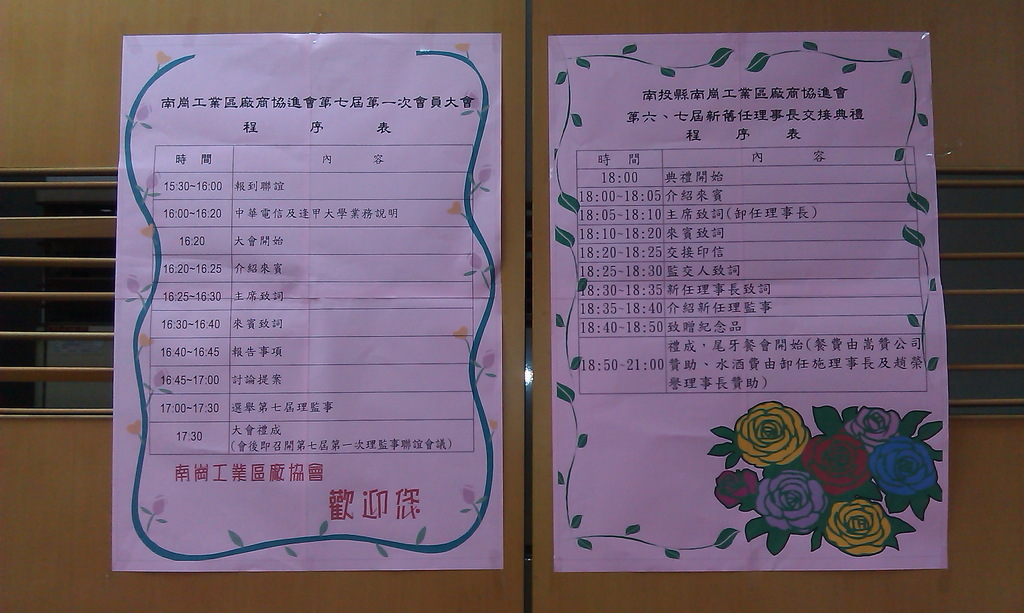 南崗工業區廠商協進會第七屆第一次會員大會
程 序 表
時 間 內 容
15:30~16:00 報到聯誼
16:00~16:20 中華電信及逢甲大學業務說明
16:20 大會開始
16:20~16:25 介紹來賓
16:25~16:30 主席致詞
16:30~16:40 來賓致詞
16:40~16:45 報告事項
16:45~17:00 討論提案
17:00~17:30 選舉第七屆理監事
17:30 大會禮成
(會後即召開第七屆第一次理監事聯誼會議)
南崗工業區廠協會
歡迎您
南投縣南崗工業區廠商協進會
第六、七屆新舊任理事長交接典禮
程 序 表
時 間 內 容
18:00 典禮開始
18:00~18:05 介紹來賓
18:05~18:10 主席致詞(卸任理事長)
18:10~18:20 來賓致詞
18:20~18:25 交接印信
18:25~18:30 監交人致詞
18:30~18:35 新任理事長致詞
18:35~18:40 介紹新任理監事
18:40~18:50 致贈紀念品
18:50~21:00 禮成，尾牙餐會開始(餐費由嵩贊公司
贊助、水酒費由卸任施理事長及趙榮
譽理事長贊助)